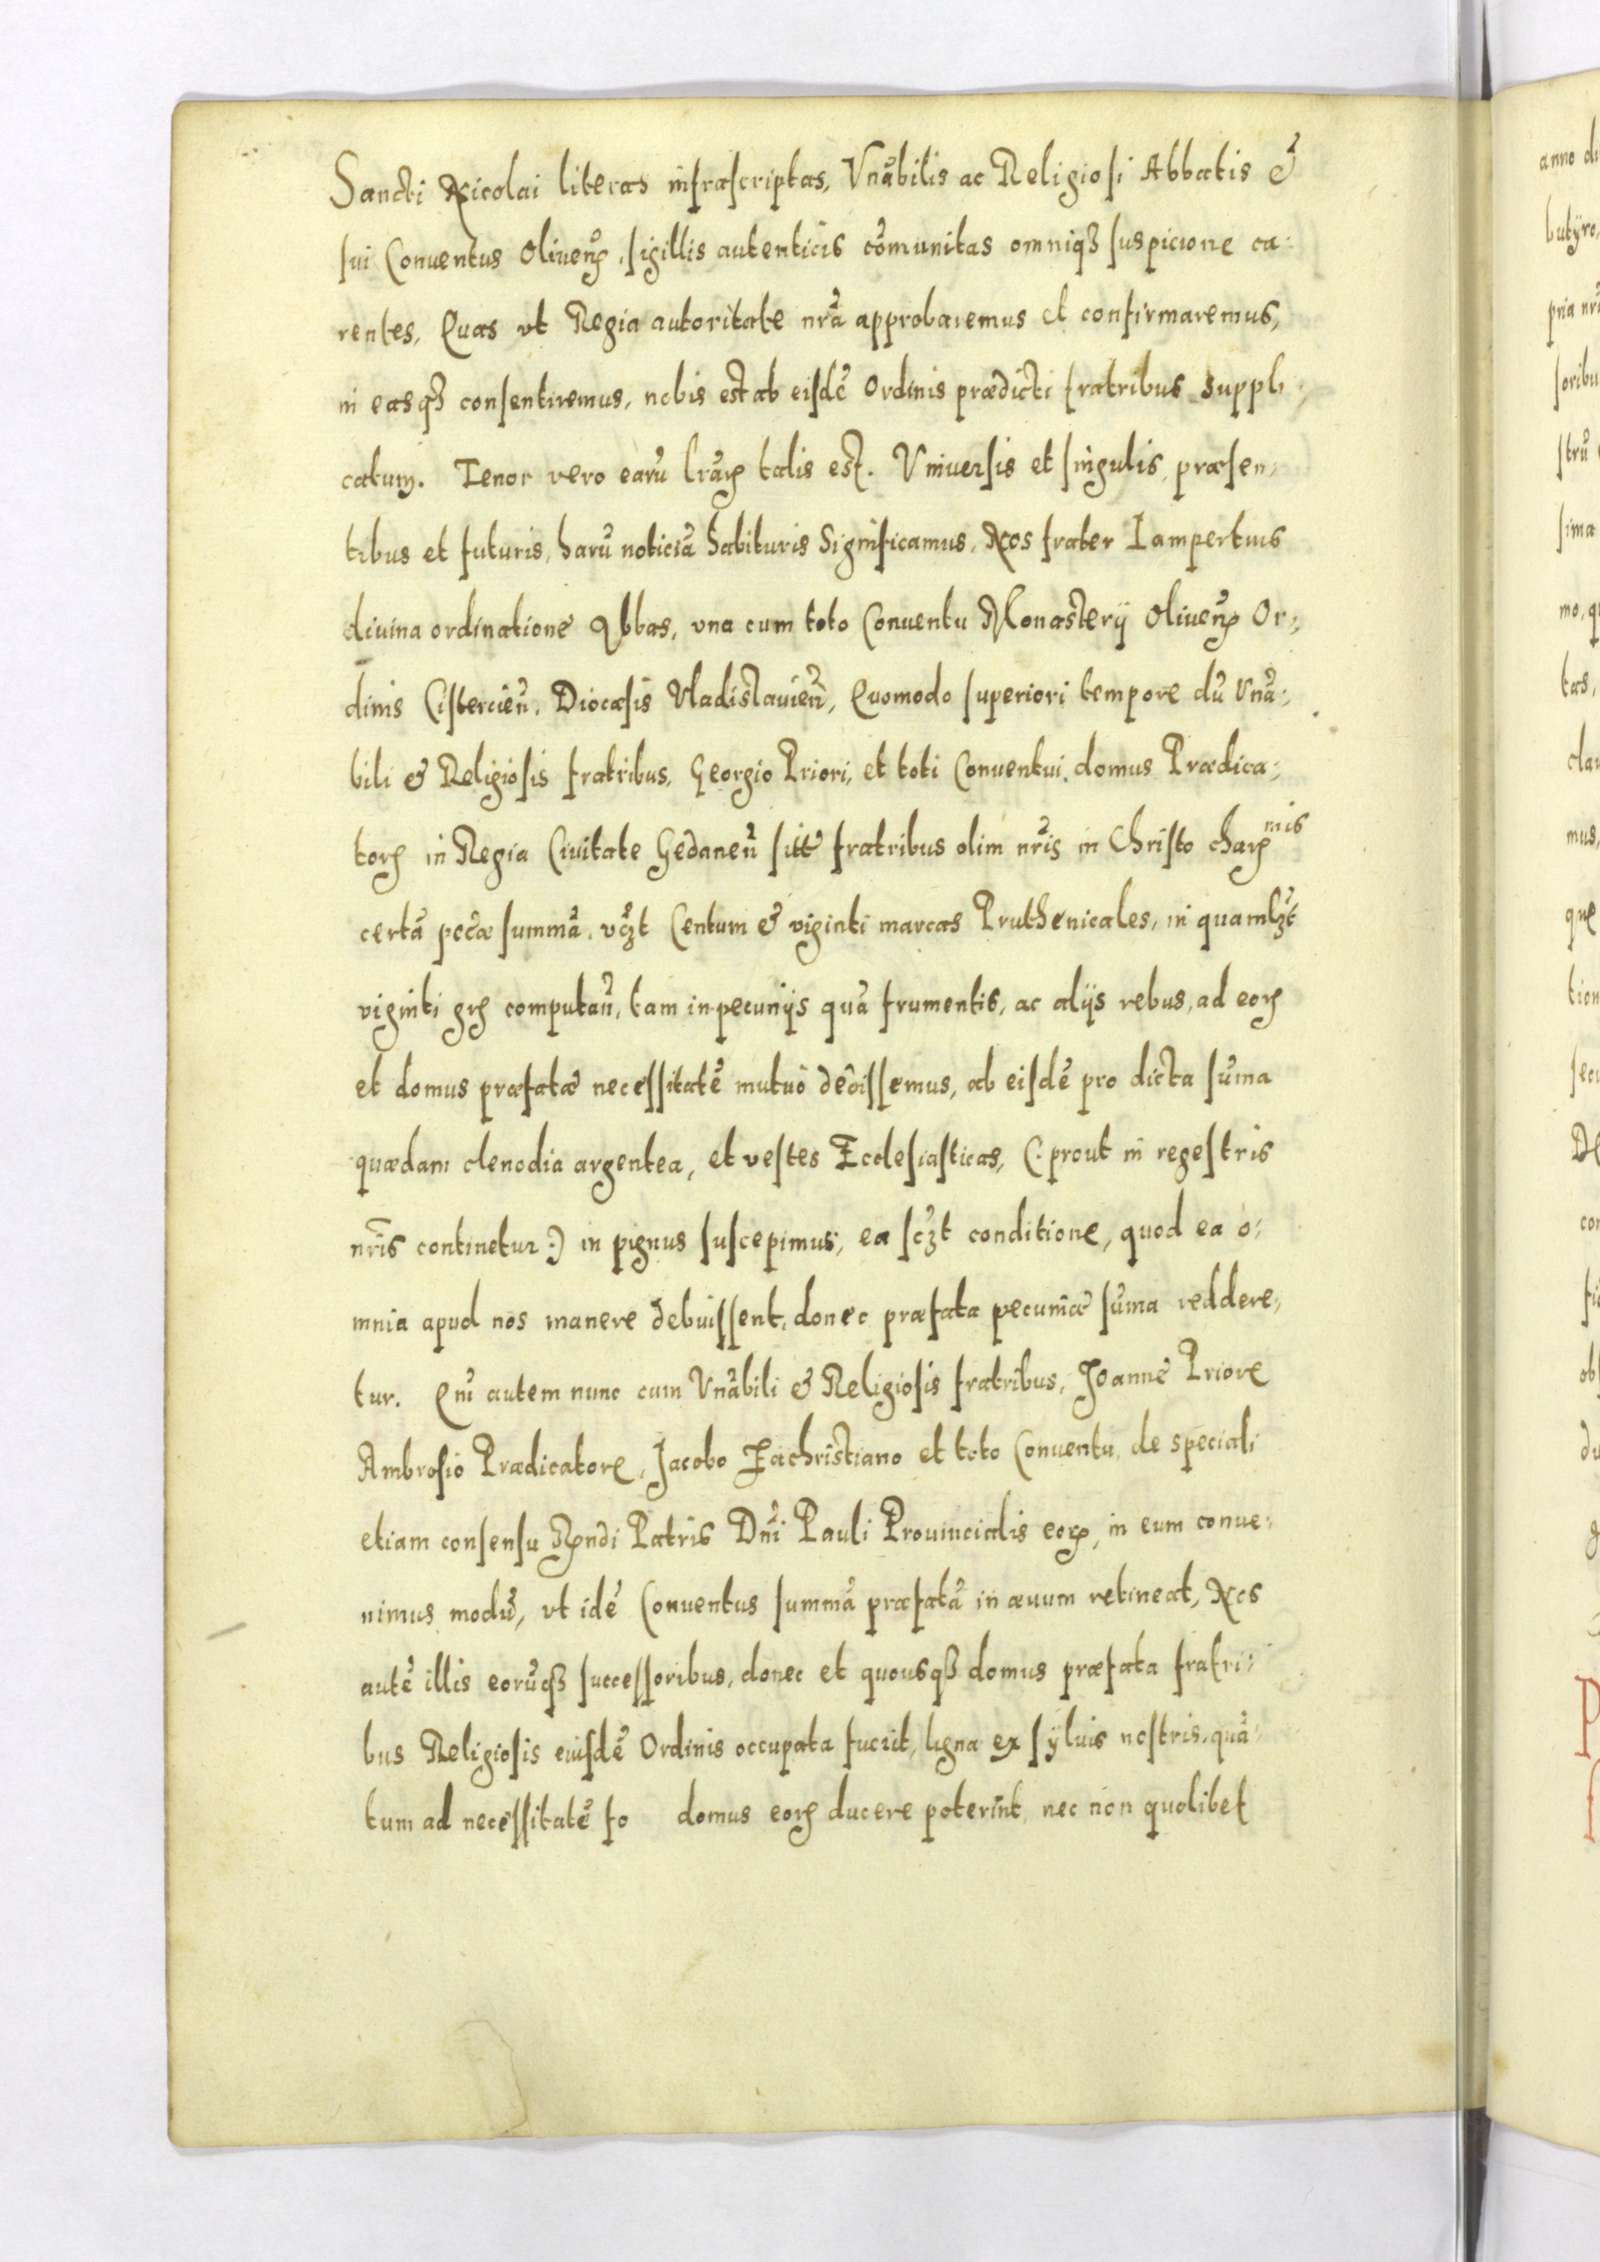 Sancti Nicolai literas infrascriptas, Vnãbilis ac Religiosi Abbatis &
sui Conuentus Oliueñ, sigillis autenticis cõmunitas omniqꝫ suspicione ca:
rentes, Quas vt Regia autoritate nrã approbaremus et confirmaremus,
in easqꝫ consentiremus, nobis est ab eisdẽ Ordinis prædicti fratribus suppli:
catum. Tenor vero earũ lrãꝝ talis est. Vniuersis et singulis, præsen:
tibus et futuris, harũ noticiã habituris Significamus, Nos frater Lampertus
diuina ordinatione Abbas, vna cum toto Conuentu Monasterij Oliueñ Or:
dinis Cistercieñ, Diocæsis Vladislauieñ, Quomodo superiori tempore dũ Vnã:
bili & Religiosis fratribus, Georgio Priori, et toti Conuentui domus Prædica:
toꝝ in Regia Ciuitate Gedaneñ sitæ fratribus olim nr̃is in Christo chariꝰmis
certã pecũæ summã, vꝫt Centum & viginti marcas Pruthenicales, in quamlꝫt
viginti grꝭ computañ, tam in pecunijs quã frumentis, ac alijs rebus, ad eoꝝ
et domus præfatæ necessitatẽ mutuò dedissemus, ab eisdẽ pro dicta sũma
quædam clenodia argentea, et vestes Ecclesiasticas, (: prout in regestris
nr̃is continetur :) in pignus suscepimus, ea scꝫt conditione, quod ea o:
mnia apud nos manere debuissent, donec præfata pecuniæ sũma reddere:
tur. Qui autem nunc cum Vnãbili & Religiosis fratribus, Joanne Priore
Ambrosio Prædicatore, Jacobo Pachristiano et toto Conuentu, de speciali
etiam consensu Rndi Patris Dnĩ Pauli Prouincialis eoꝝ, in eum conue:
nimus modũ, vt idẽ Conuentus summã præfatã in æuum retineat, Nos
autẽ illis eorũqꝫ successoribus, donec et quousqꝫ domus præfata fratri:
bus Religiosis eiusdẽ Ordinis occupata fuerit, ligna ex syluis nostris, quã:
tum ad necessitatẽ fo domus eoꝝ ducere poterint, nec non quolibet